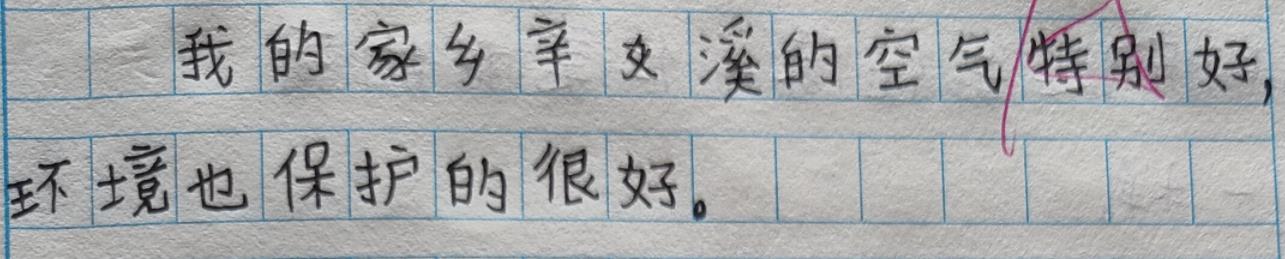 我的家乡辛女溪的空气特别好,
环境也保护的很好。